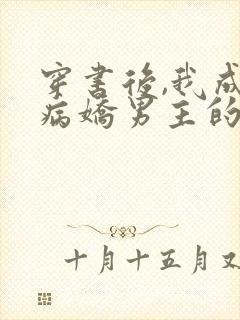 穿書後,我成
病嬌男主的
十月十五月又